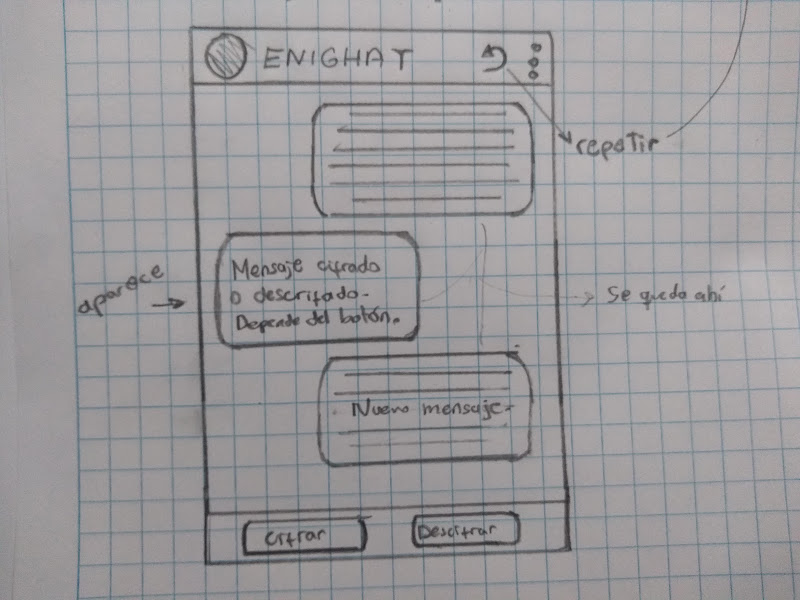 ENIGHAT
repetir
aparece
Mensaje cifrado
o descrifado.
Depende del botón.
Se queda ahí
Nuevo mensaje.
Cifrar
Descifrar